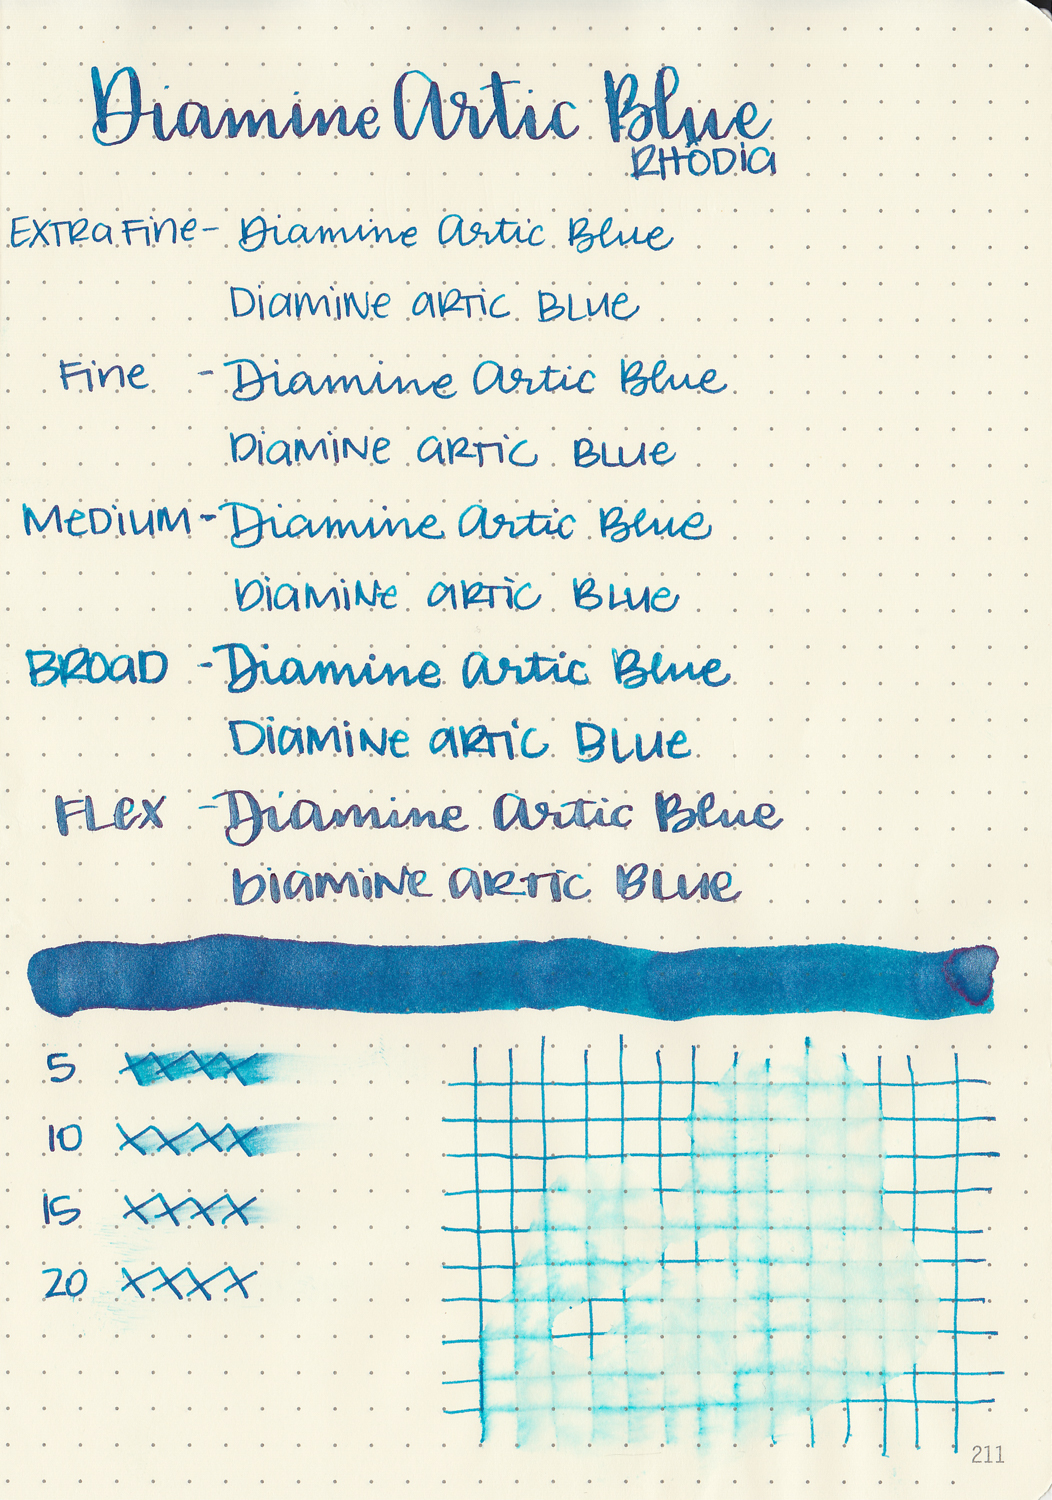 Diamine Artic Blue
RHODIA
EXTRA FINE - Diamine Artic Blue
DIAMINE ARTIC BLUE
FINE - Diamine Artic Blue
DIAMINE ARTIC BLUE
MEDIUM - Diamine Artic Blue
DIAMINE ARTIC BLUE
BROAD - Diamine Artic Blue
DIAMINE ARTIC BLUE
FLEX - Diamine Artic Blue
DIAMINE ARTIC BLUE
5 XXXX
10 XXXX
15 XXXX
20 XXXX
211